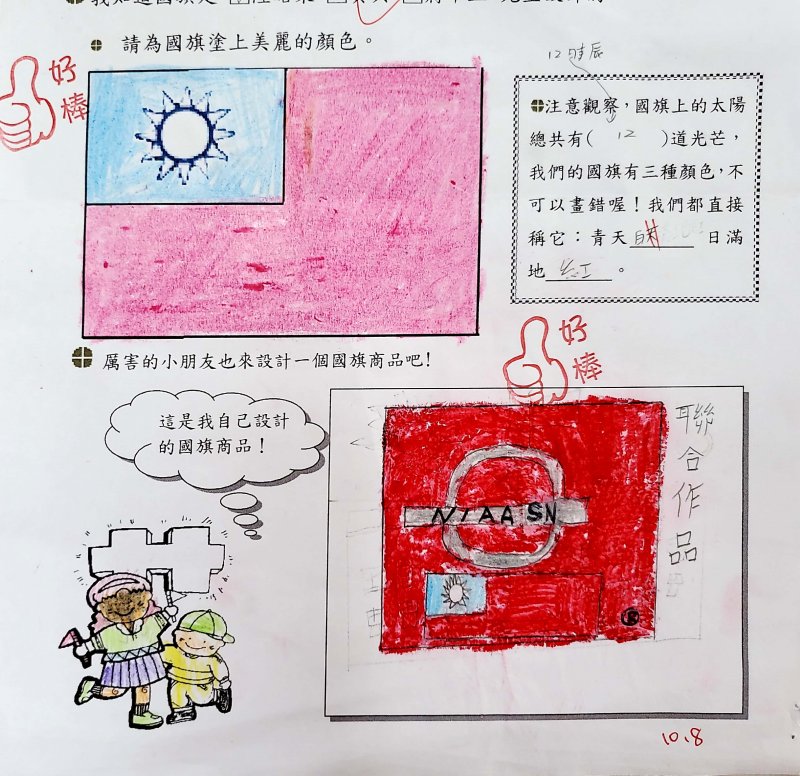 請為國旗塗上美麗的顏色。
好棒
12時辰
注意觀察，國旗上的太陽
總共有( 12 )道光芒，
我們的國旗有三種顏色，不
可以畫錯喔！我們都直接
稱它：青天白 日滿
地紅。
厲害的小朋友也來設計一個國旗商品吧！
好棒
這是我自己設計
的國旗商品！
NIAASN
聯合作品
10.8